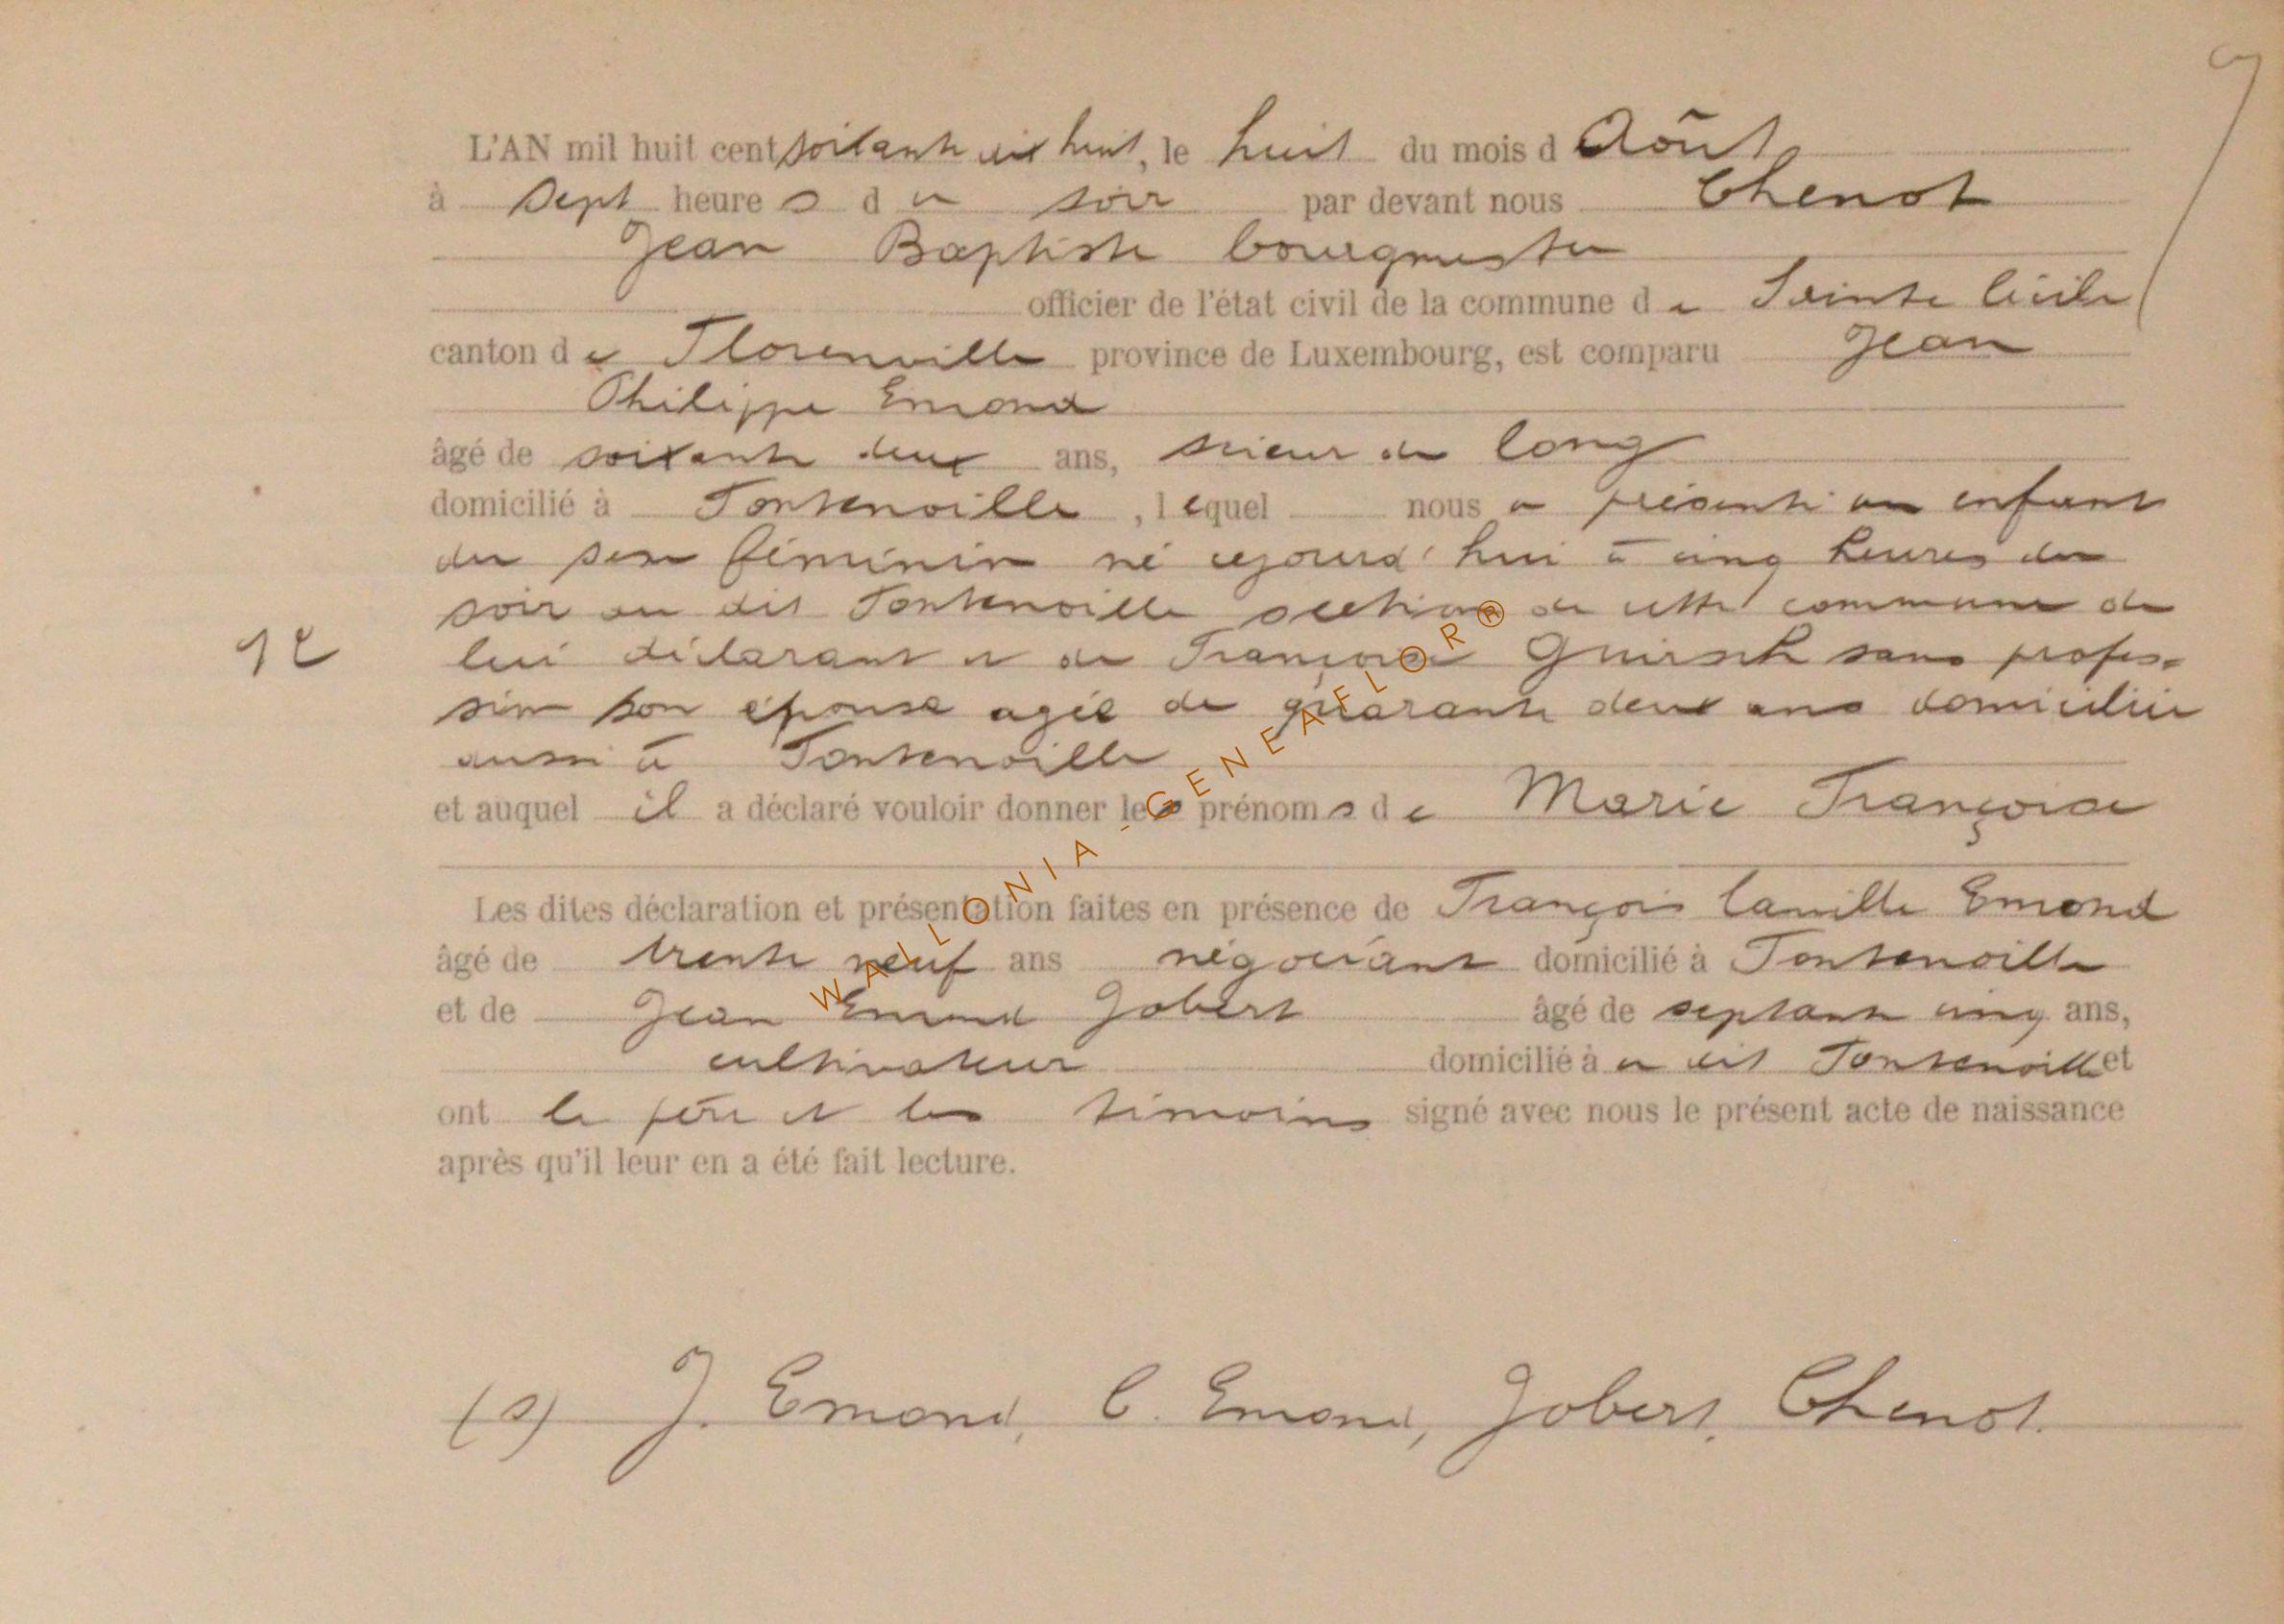 L'AN mil huit cent soixante dix huit, le huit du mois d Août
à sept heures du soir par devant nous Chenot
Jean Baptiste bourgmestre
officier de l'état civil de la commune de Sainte Cécile
canton de Florenville province de Luxembourg, est comparu Jean
Philippe Emond
âgé de soixante deux ans, scieur de long
domicilié à Fontenoille, lequel nous a présenté un enfant
du sexe féminin né cejourd'hui à cinq heures du
soir au dit Fontenoille section de cette commune de
lui déclarant et de Françoise Guirsch sans profes=
sion son épouse agée de quarante deux ans domiciliée
aussi à Fontenoille
et auquel il a déclaré vouloir donner les prénoms de Marie Françoise
Les dites déclaration et présentation faites en présence de François Camille Emond
âgé de trente neuf ans négociant domicilié à Fontenoille
et de Jean Emond Jobert âgé de septante cinq ans,
cultivateur domicilié à u dit Fontenoille et
ont le père et les témoins signé avec nous le présent acte de naissance
après qu'il leur en a été fait lecture.
(s) J. Emond, C. Emond, Jobert, Chenot.
WALLONIA - GENEAFLOR®